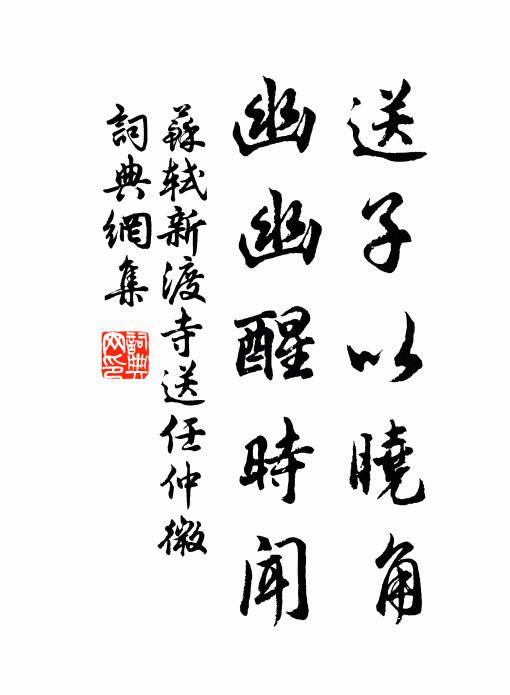 送子以曉角
幽幽醒時聞
蘇軾新渡寺送任仲微
詞典網集